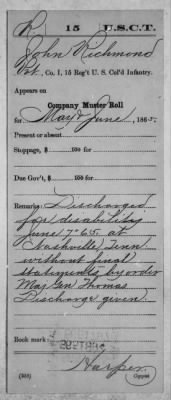 R 15 U.S.C.T.
John Richmond
Pvt., Co. I, 15 Reg't U. S. Col'd Infantry.
Appears on
Company Muster Roll
for May & June, 1865.
Present or absent
Stoppage, $ 100 for
Due Gov't, $ 100 for
Remarks: Discharged
for disability
June 7" 65 at
Nashville, Tenn
without final
statements by order
Maj Gen Thomas
Discharge given.
Book mark:
Harper
(358) Copyist.